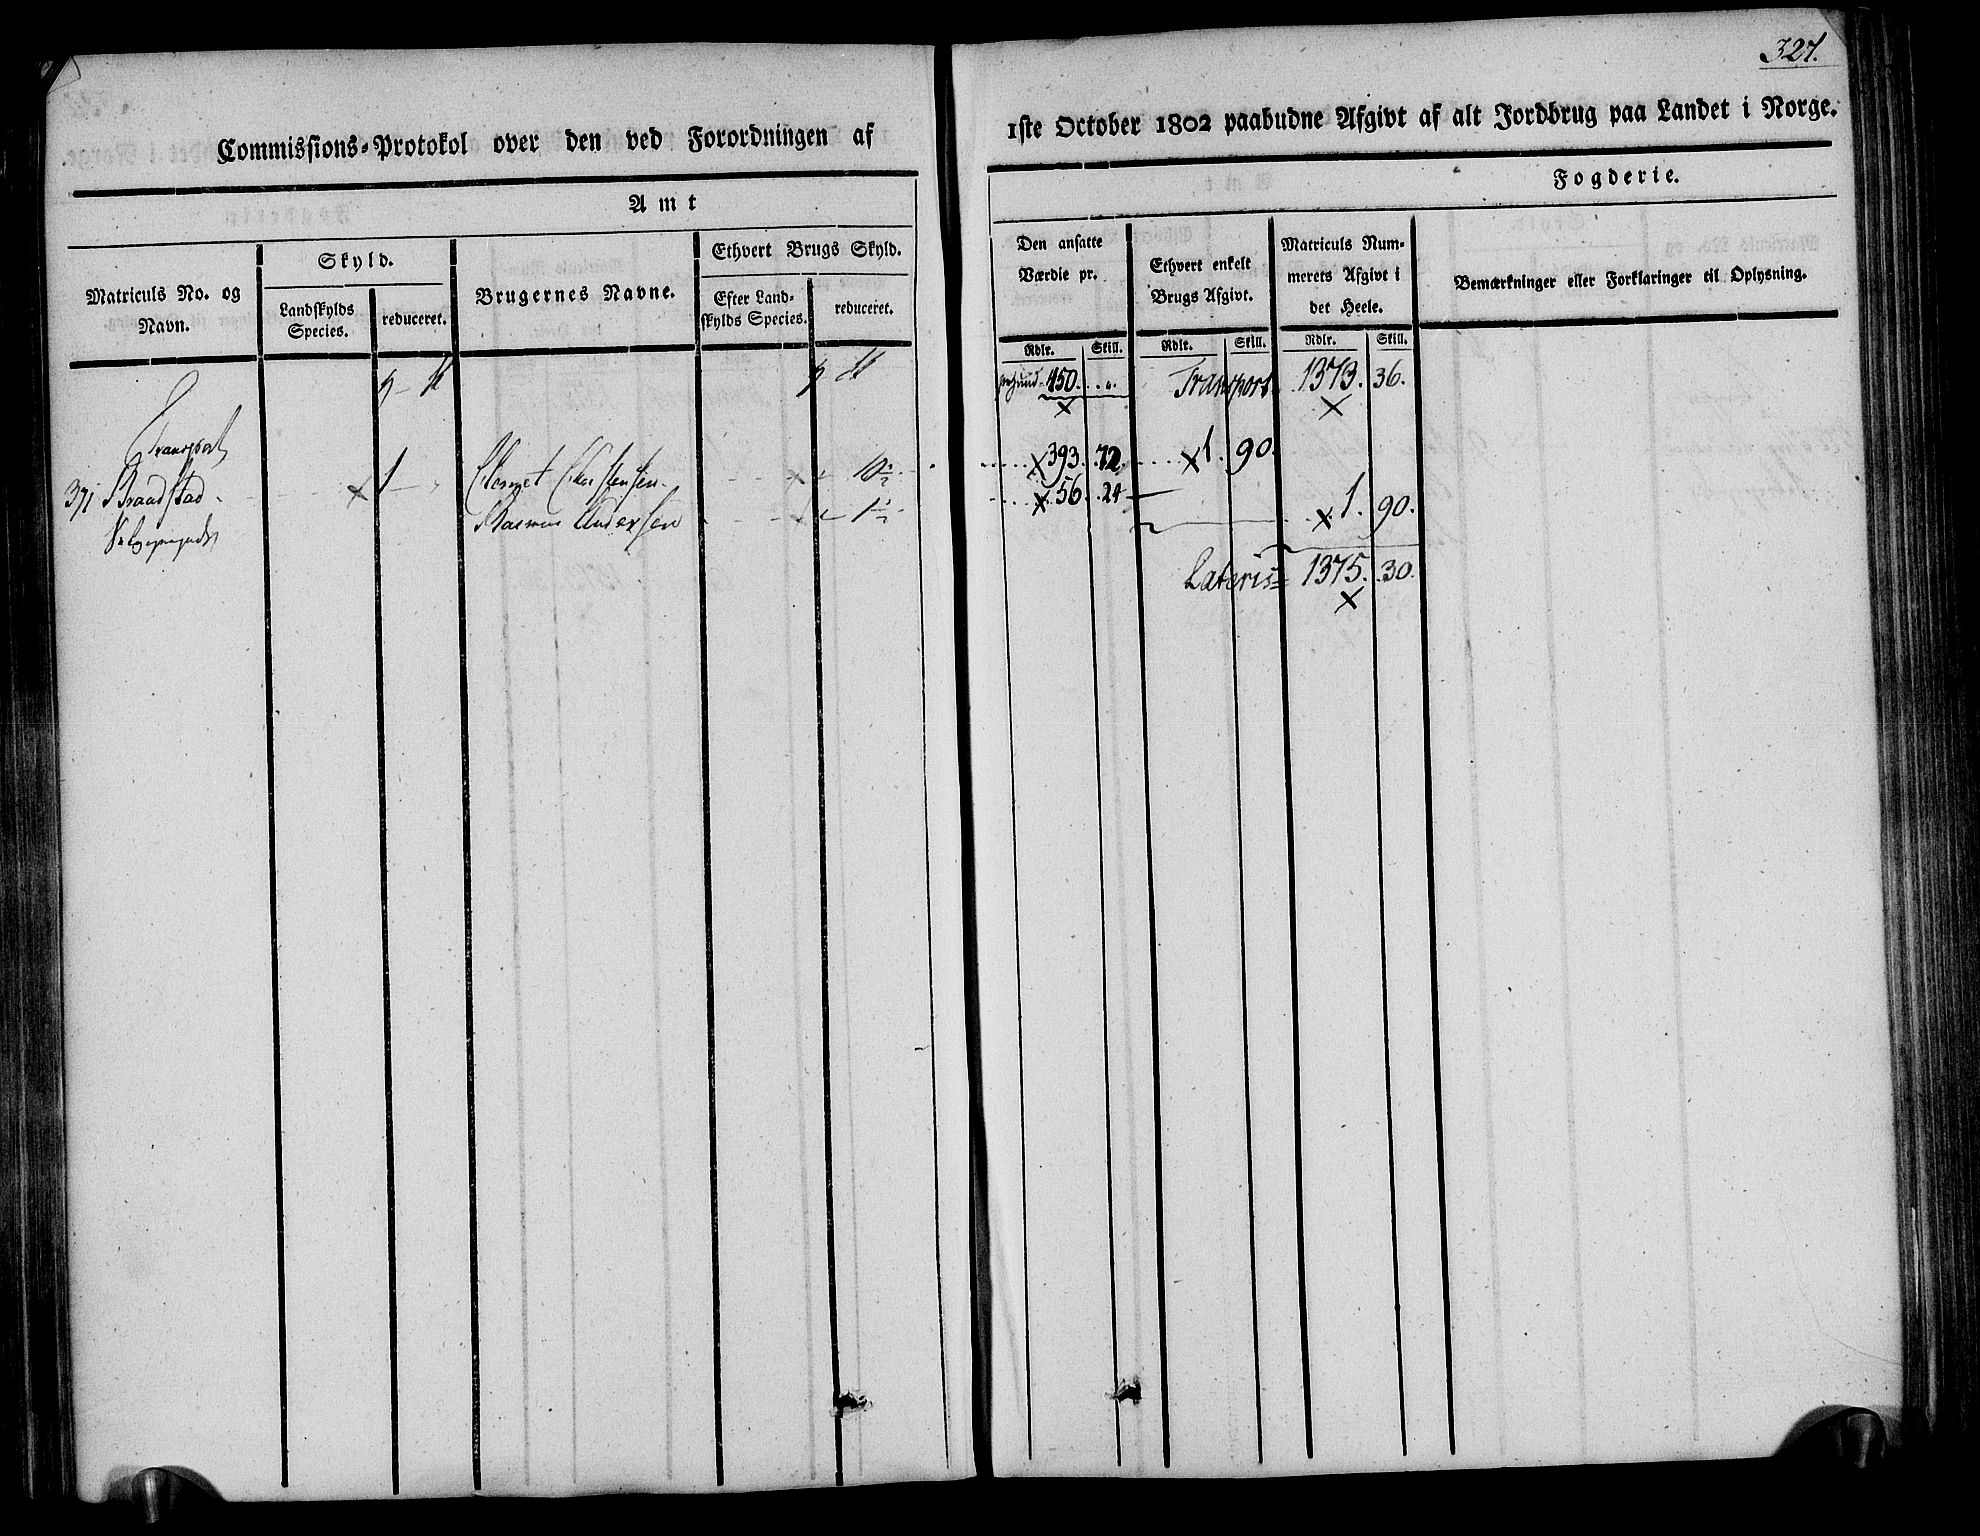 327.
Commissions-Protokol over den ved Forordningen af 1ste October 1802 paabudne Afgivt af alt Jordbrug paa Landet i Norge.
Amt
Fogderie.
Matriculs No. og Navn.
Skyld.
Landskylds Species.
reduceret.
Brugernes Navne.
Ethvert Brugs Skyld.
Efter Landskylds Species.
reduceret.
Den ansatte Værdie pr.
Rdlr. Skill.
Ethvert enkelt Brugs Afgivt.
Rdlr. Skill.
Matriculs Nummerets Afgivt i det Heele.
Rdlr. Skill.
Bemærkninger eller Forklaringer til Oplysning.
450. Transport 1373. 36.
Transport
371 Braadstad 1 Clemet 10 393. 72 1. 90.
Rasmus Andersen 1 56. 24 1. 90.
Lateris 1375. 30.